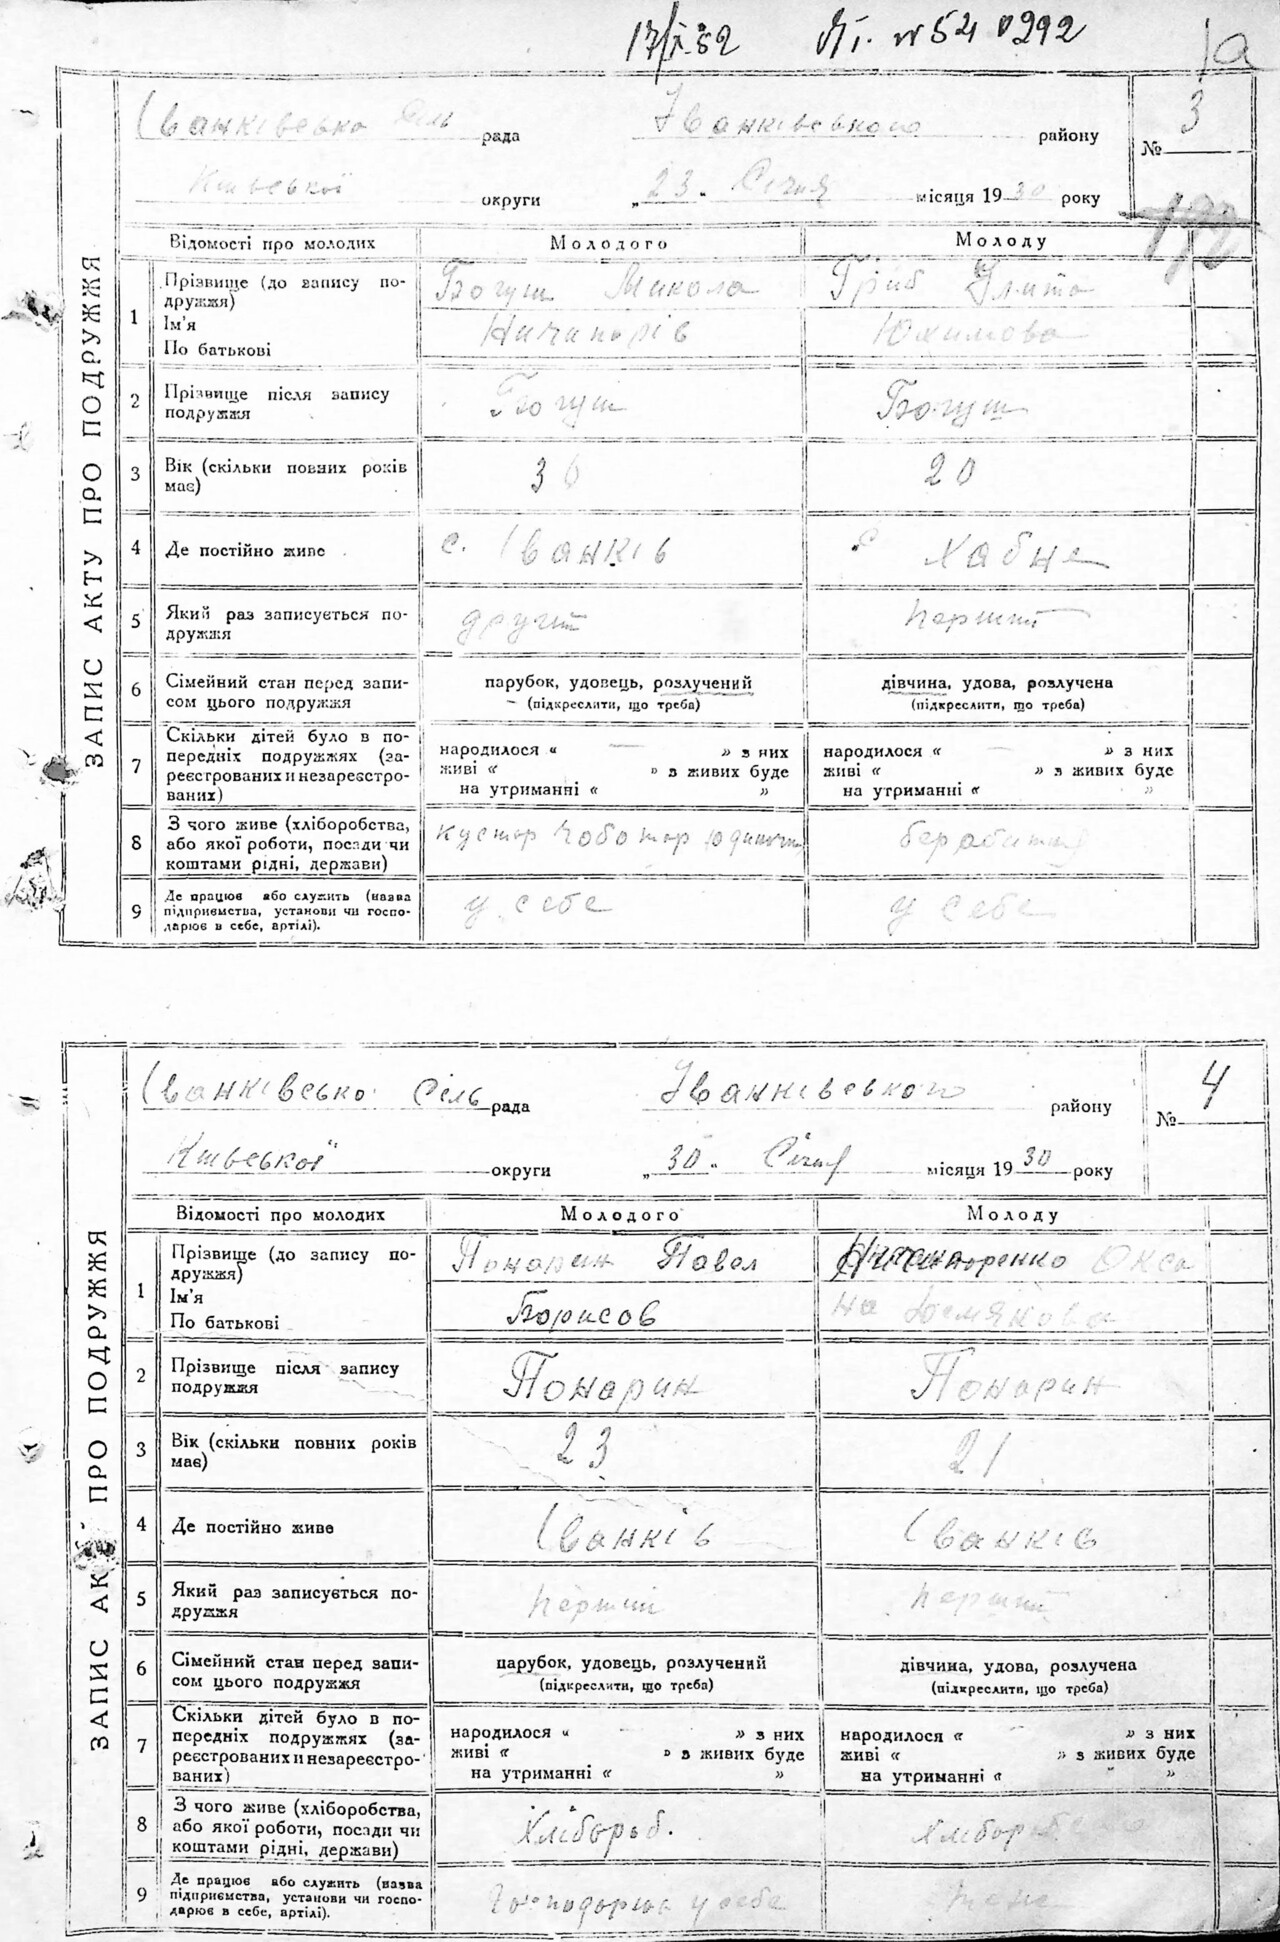 17/ІХ 52 № 54 0292
1а
ЗАПИС АКТУ ПРО ПОДРУЖЖЯ
Іванківсько Сіль рада Іванківського району
№ 3
Київської округи „23" Січня місяця 1930 року
Відомості про молодих Молодого Молоду
1 Прізвище (до запису подружжя) Богуш Микола Гриб Улита
Ім'я
По батькові Ничипорів Юхимова
2 Прізвище після запису подружжя Богуш Богуш
3 Вік (скільки повних років має) 30 20
4 Де постійно живе с. Іванків с Хабне
5 Який раз записується подружжя другий перший
6 Сімейний стан перед записом цього подружжя парубок, удовець, розлучений дівчина, удова, розлучена
(підкреслити, що треба) (підкреслити, що треба)
7 Скільки дітей було в попередніх подружжях (зареєстрованих и незареєстрованих)
народилося « — » з них народилося « — » з них
живі « » з живих буде живі « » з живих буде
на утриманні « » на утриманні « »
8 З чого живе (хліборобства, або якої роботи, посади чи коштами рідні, держави) кустар чоботар
9 Де працює або служить (назва підприємства, установи чи господарює в себе, артілі). у себе у себе
ЗАПИС АК ПРО ПОДРУЖЖЯ
Іванківсько Сіль рада Іванківського району
№ 4
Київської округи „30" Січня місяця 1930 року
Відомості про молодих Молодого Молоду
1 Прізвище (до запису подружжя) Понарин Павел Ничипоренко Окса
Ім'я
По батькові Борисов на Демянова
2 Прізвище після запису подружжя Понарин Понарин
3 Вік (скільки повних років має) 23 21
4 Де постійно живе Іванків Іванків
5 Який раз записується подружжя перший перший
6 Сімейний стан перед записом цього подружжя парубок, удовець, розлучений дівчина, удова, розлучена
(підкреслити, що треба) (підкреслити, що треба)
7 Скільки дітей було в попередніх подружжях (зареєстрованих и незареєстрованих)
народилося « » з них народилося « » з них
живі « » з живих буде живі « » з живих буде
на утриманні « » на утриманні « »
8 З чого живе (хліборобства, або якої роботи, посади чи коштами рідні, держави) Хлібороб.
9 Де працює або служить (назва підприємства, установи чи господарює в себе, артілі). у себе